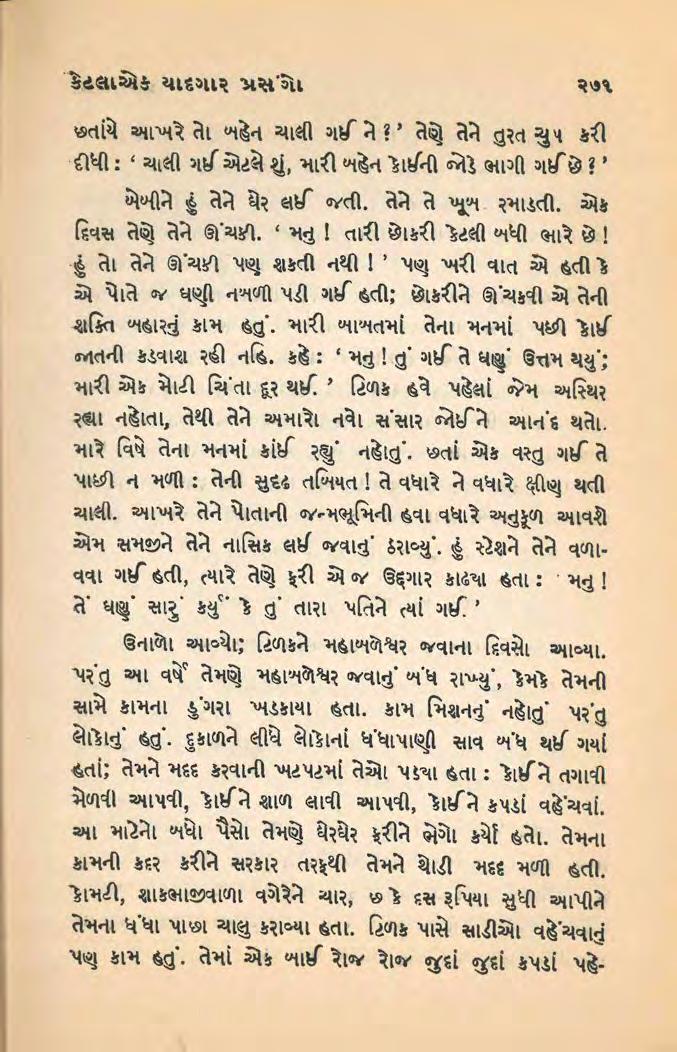 કેટલાએક યાદગાર પ્રસંગો ૨૭૧
છતાંયે આખરે તો બહેન ચાલી ગઈ ને ?’ તેણે તેને તુરત ચુપ કરી
દીધી : ‘ ચાલી ગઈ એટલે શું, મારી બહેન કોઈની જોડે ભાગી ગઈ છે ? ’
બેબીને હું તેને ઘેર લઈ જતી. તેને તે ખૂબ રમાડતી. એક
દિવસ તેણે તેને ઊંચકી. ‘ મનુ ! તારી છોકરી કેટલી બધી ભારે છે !
હું તો તેને ઊંચકી પણ શકતી નથી ! ’ પણ ખરી વાત એ હતી કે
એ પોતે જ ઘણી નબળી પડી ગઈ હતી; છોકરીને ઊંચકવી એ તેની
શક્તિ બહારનું કામ હતું. મારી બાબતમાં તેના મનમાં પછી કોઈ
જાતની કડવાશ રહી નહિ. કહે : ‘ મનુ ! તું ગઈ તે ઘણું ઉત્તમ થયું;
મારી એક મોટી ચિંતા દૂર થઈ. ’ ટિળક હવે પહેલાં જેમ અસ્થિર
રહ્યા નહોતા, તેથી તેને અમારો નવો સંસાર જોઈને આનંદ થતો.
મારે વિષે તેના મનમાં કાંઈ રહ્યું નહોતું. છતાં એક વસ્તુ ગઈ તે
પાછી ન મળી : તેની સુદૃઢ તબિયત ! તે વધારે ને વધારે ક્ષીણ થતી
ચાલી. આખરે તેને પોતાની જન્મભૂમિની હવા વધારે અનુકૂળ આવશે
એમ સમજીને તેને નાસિક લઈ જવાનું ઠરાવ્યું. હું સ્ટેશને તેને વળા-
વવા ગઈ હતી, ત્યારે તેણે ફરી એ જ ઉદ્ગાર કાઢ્યા હતા : ‘ મનુ !
તેં ઘણું સારું કર્યું કે તું તારા પતિને ત્યાં ગઈ. ’
ઉનાળો આવ્યો; ટિળકને મહાબળેશ્વર જવાના દિવસો આવ્યા.
પરંતુ આ વર્ષે તેમણે મહાબળેશ્વર જવાનું બંધ રાખ્યું, કેમકે તેમની
સામે કામના ડુંગરા ખડકાયા હતા. કામ મિશનનું નહોતું પરંતુ
લોકોનું હતું. દુકાળને લીધે લોકોનાં ધંધાપાણી સાવ બંધ થઈ ગયાં
હતાં; તેમને મદદ કરવાની ખટપટમાં તેઓ પડ્યા હતા : કોઈને તગાવી
મેળવી આપવી, કોઈને શાળ લાવી આપવી, કોઈને કપડાં વહેંચવાં.
આ માટેનો બધો પૈસો તેમણે ઘેરઘેર ફરીને ભેગો કર્યો હતો. તેમના
કામની કદર કરીને સરકાર તરફથી તેમને થોડી મદદ મળી હતી.
કોમટી, શાકભાજીવાળા વગેરેને ચાર, છ કે દસ રૂપિયા સુધી આપીને
તેમના ધંધા પાછા ચાલુ કરાવ્યા હતા. ટિળક પાસે સાડીઓ વહેંચવાનું
પણ કામ હતું. તેમાં એક બાઈ રોજ રોજ જુદાં જુદાં કપડાં પહે-